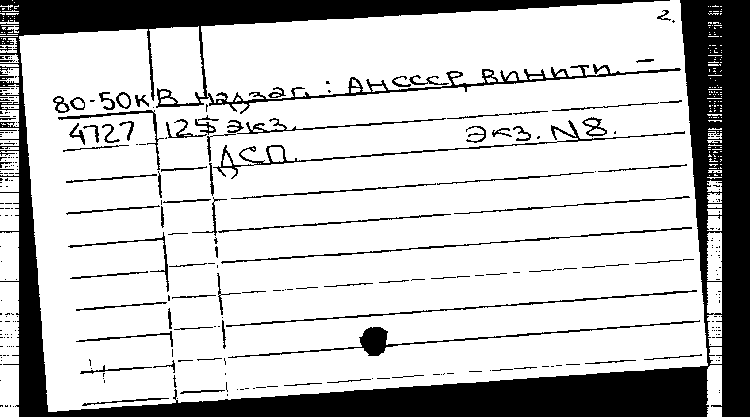 2.
80-50к В надзаг.: АНСССР, ВИНИТИ. –
4727 125 экз.
ДСП. Экз. N8.